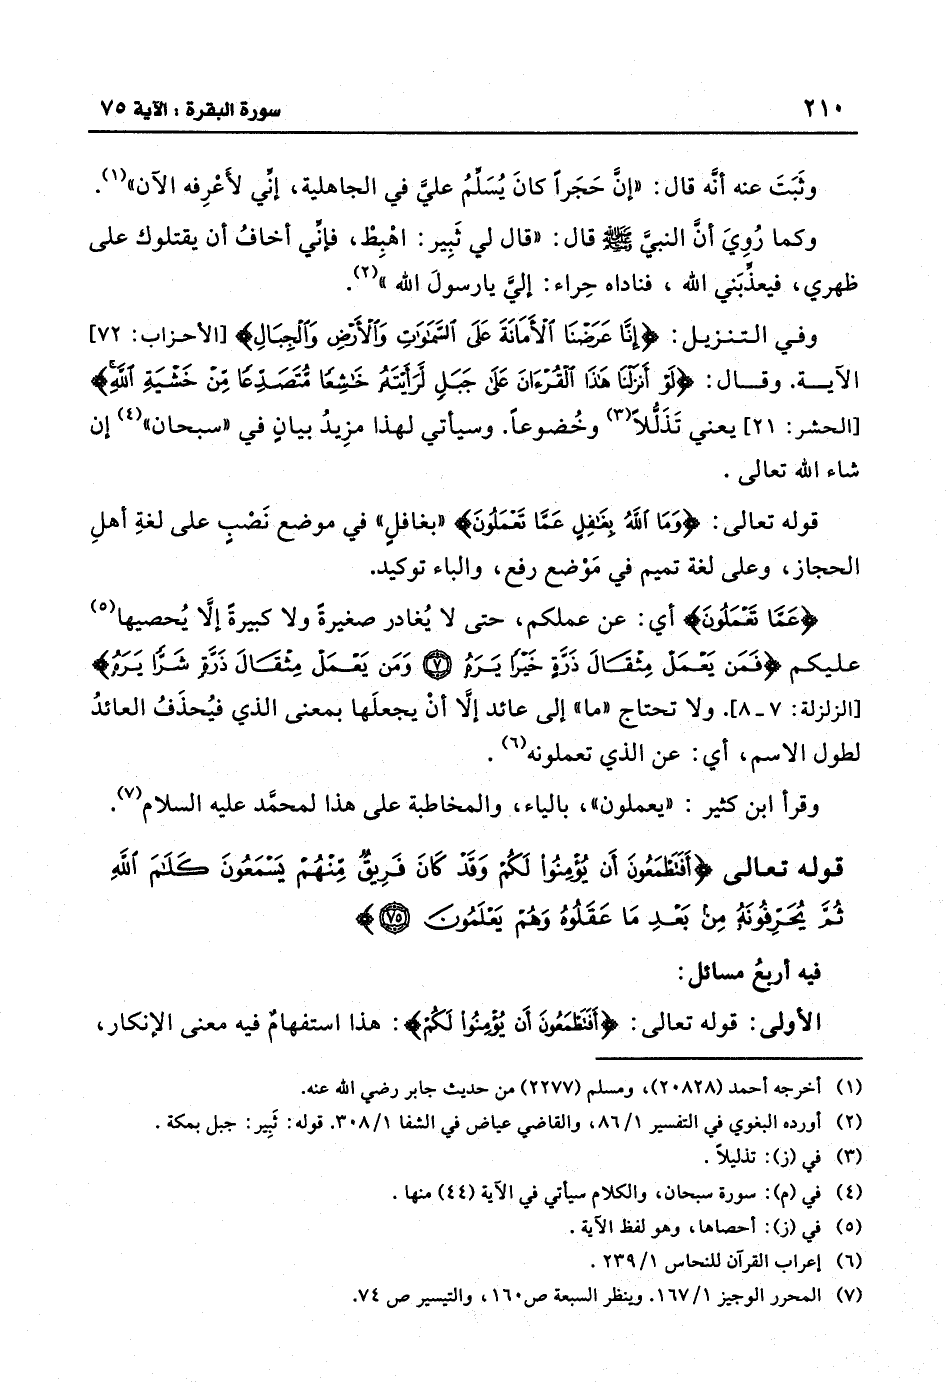 ٢١٠ سورة البقرة : الآية ٧٥
وثَبَتَ عنه أنَّه قال: «إنَّ حَجَراً كانَ يُسَلِّمُ عليَّ في الجاهلية، إنِّي لأَعْرِفه الآن»(١).
وكما رُوِيَ أنَّ النبيَّ ﷺ قال: «قال لي ثَبِير: اهْبِطْ، فإنِّي أخافُ أن يقتلوك على
ظهري، فيعذِّبَني الله ، فناداه حِراء: إليَّ يارسولَ الله »(٢).
وفي التنزيل: ﴿إِنَّا عَرَضْنَا ٱلْأَمَانَةَ عَلَى ٱلسَّمَٰوَٰتِ وَٱلْأَرْضِ وَٱلْجِبَالِ﴾ [الأحزاب: ٧٢]
الآية. وقال: ﴿لَوْ أَنزَلْنَا هَٰذَا ٱلْقُرْءَانَ عَلَىٰ جَبَلٍ لَّرَأَيْتَهُۥ خَٰشِعًا مُّتَصَدِّعًا مِّنْ خَشْيَةِ ٱللَّهِۚ﴾
[الحشر: ٢١] يعني تَذَلُّلاً(٣) وخُضوعاً. وسيأتي لهذا مزيدُ بيانٍ في «سبحان»(٤) إن
شاء الله تعالى .
قوله تعالى: ﴿وَمَا ٱللَّهُ بِغَٰفِلٍ عَمَّا تَعْمَلُونَ﴾ «بغافلٍ» في موضع نَصْبٍ على لغةِ أهلِ
الحجاز، وعلى لغة تميم في مَوْضع رفع، والباء توكيد.
﴿عَمَّا تَعْمَلُونَ﴾ أي: عن عملكم، حتى لا يُغادر صغيرةً ولا كبيرةً إلَّا يُحصيها(٥)
عليكم ﴿فَمَن يَعْمَلْ مِثْقَالَ ذَرَّةٍ خَيْرًا يَرَهُۥ ۝٧ وَمَن يَعْمَلْ مِثْقَالَ ذَرَّةٍ شَرًّا يَرَهُۥ﴾
[الزلزلة: ٧ـ٨]. ولا تحتاج «ما» إلى عائد إلَّا أنْ يجعلَها بمعنى الذي فيُحذَفُ العائدُ
لطول الاسم، أي: عن الذي تعملونه(٦) .
وقرأ ابن كثير : «يعملون»، بالياء، والمخاطبة على هذا لمحمَّد عليه السلام(٧).
قوله تعالى ﴿أَفَتَطْمَعُونَ أَن يُؤْمِنُوا۟ لَكُمْ وَقَدْ كَانَ فَرِيقٌ مِّنْهُمْ يَسْمَعُونَ كَلَٰمَ ٱللَّهِ
ثُمَّ يُحَرِّفُونَهُۥ مِنۢ بَعْدِ مَا عَقَلُوهُ وَهُمْ يَعْلَمُونَ ۝٧٥﴾
فيه أربعُ مسائل:
الأولى: قوله تعالى: ﴿أَفَتَطْمَعُونَ أَن يُؤْمِنُوا۟ لَكُمْ﴾: هذا استفهامٌ فيه معنى الإنكار،
(١) أخرجه أحمد (٢٠٨٢٨)، ومسلم (٢٢٧٧) من حديث جابر رضي الله عنه.
(٢) أورده البغوي في التفسير ١/ ٨٦، والقاضي عياض في الشفا ١/ ٣٠٨. قوله: ثَبِير: جبل بمكة .
(٣) في (ز): تذليلاً .
(٤) في (م): سورة سبحان، والكلام سيأتي في الآية (٤٤) منها .
(٥) في (ز): أحصاها، وهو لفظ الآية .
(٦) إعراب القرآن للنحاس ١/ ٢٣٩ .
(٧) المحرر الوجيز ١/ ١٦٧. وينظر السبعة ص١٦٠، والتيسير ص ٧٤.